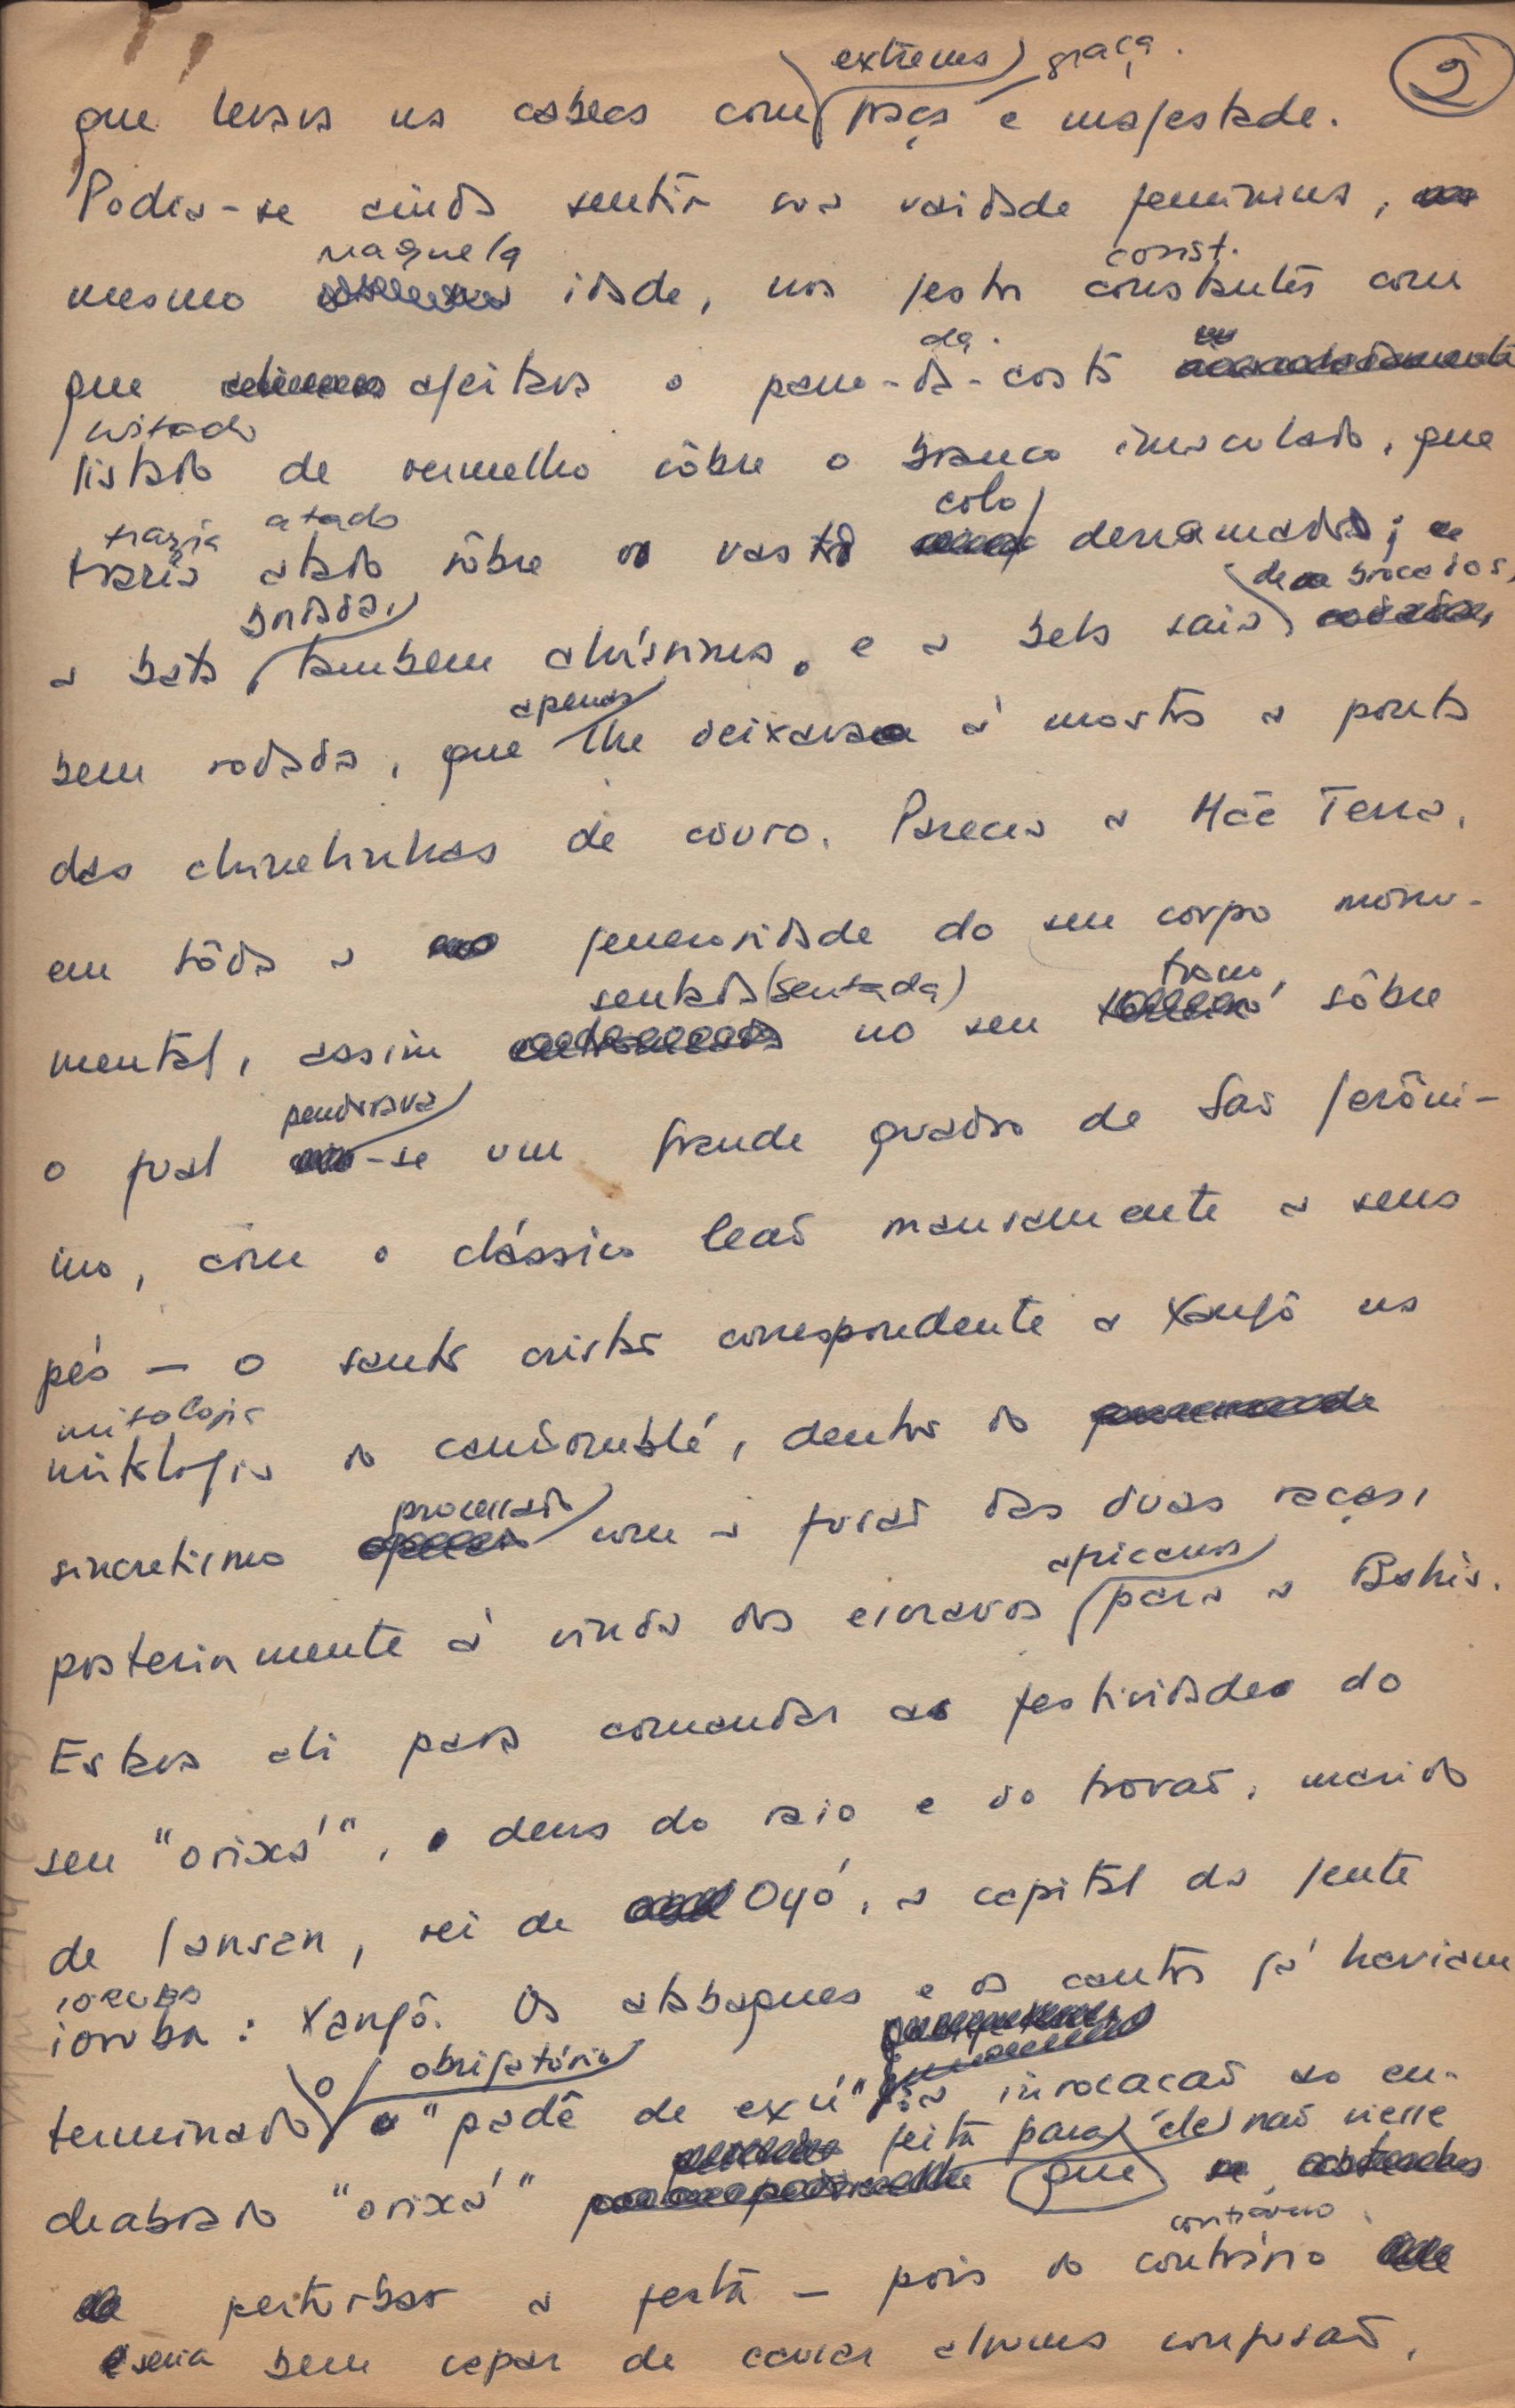 2
extrema graça.
que levava na cabeça com graça e majestade.
Podia-se ainda sentir sua vaidade feminina,
naquela const.
mesmo idade, nos gestos constantes com
da.
que ajeitava o pano-da-costa
listado
listado de vermelho sôbre o branco imaculado, que
trazia atado colo
trazia atado sôbre o vasto derramado; e
bordada, de brocados,
a bata também alvíssima, e a bela saia
apenas
bem rodada, que lhe deixava à mostra a ponta
das chinelinhas de couro. Parecia a Mãe Terra,
em tôda a generosidade do seu corpo monu-
sentada (sentada) trono,
mental, assim no seu sôbre
pendurava
o qual -se um grande quadro de São Jerôni-
mo, com o clássico leão mansamente a seus
pés — o santo cristão correspondente a Xangô na
mitologia
mitologia do candomblé, dentro do
processado
sincretismo com a fusão das duas raças,
africanos
posteriormente à vinda dos escravos para a Bahia.
Estava ali para comandar as festividades do
seu "orixá", o deus do raio e do trovão, marido
de Iansan, rei de Oyó, a capital da gente
ioruba
ioruba: Xangô. Os atabaques e os cantos já haviam
o obrigatório
terminado o "padê de exú" a invocação ao en-
feita para êle não viesse
diabrado "orixá" que
contrário
perturbar a festa — pois do contrário
seria bem capaz de causar alguma confusão.